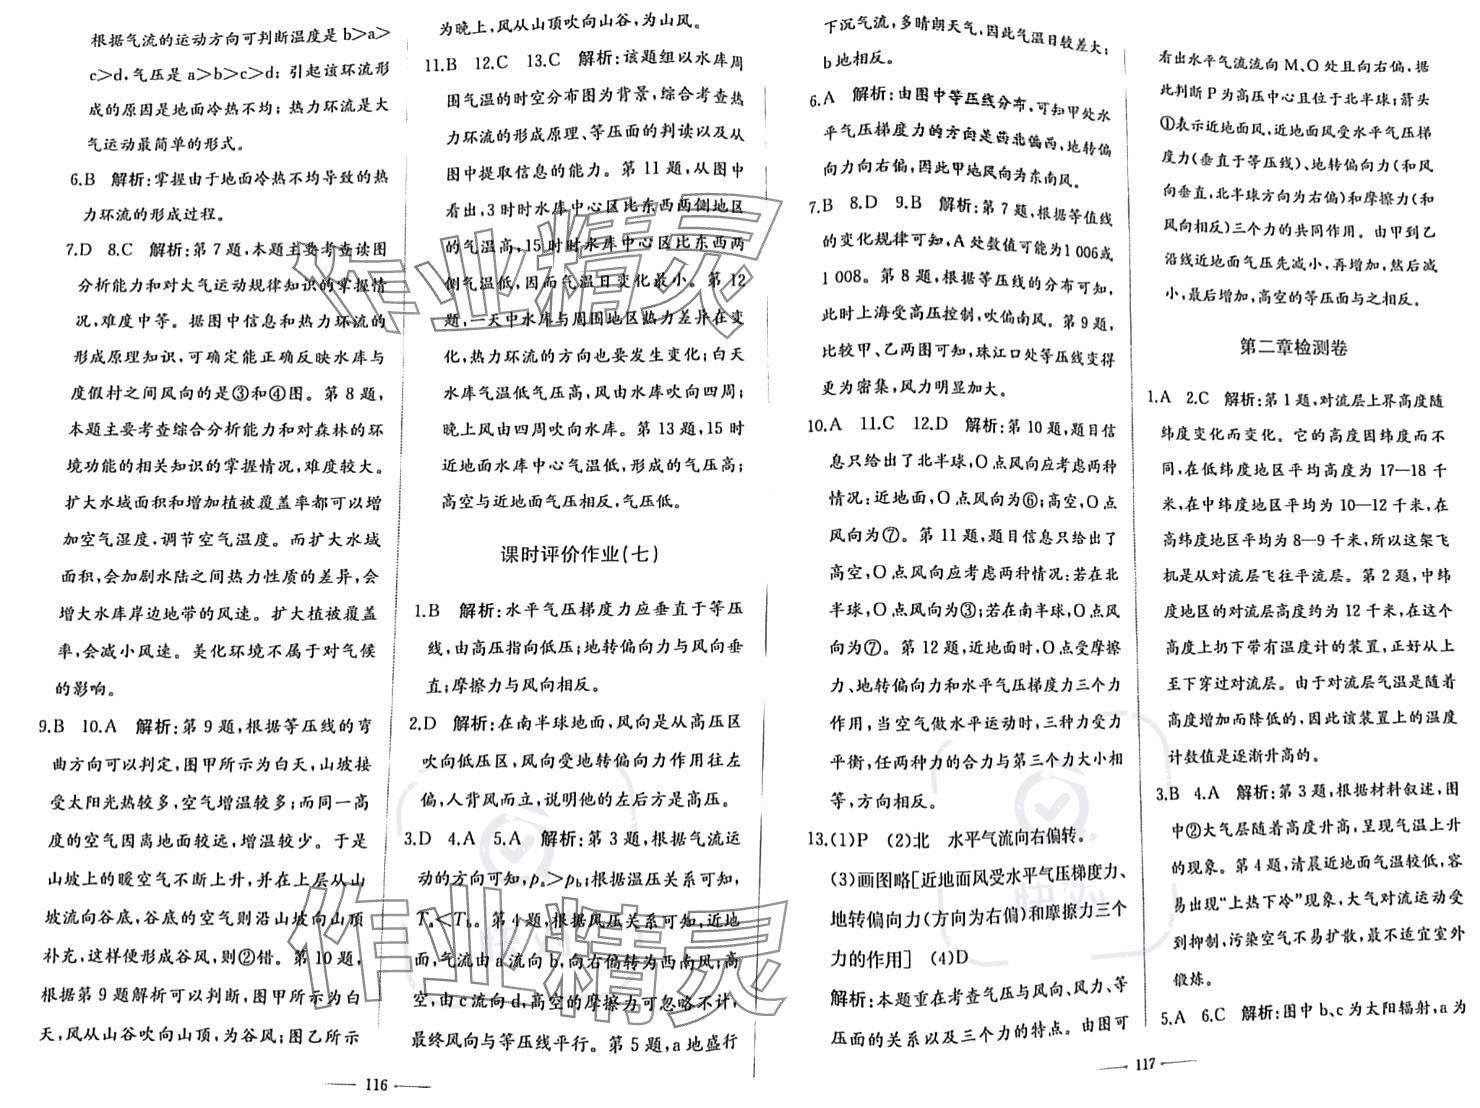 根据气流的运动方向可判断温度是b>a>
c>d,气压是a>b>c>d;引起该环流形
成的原因是地面冷热不均;热力环流是大
气运动最简单的形式。
6.B 解析:掌握由于地面冷热不均导致的热
力环流的形成过程。
7.D 8.C 解析:第7题,本题主要考查读图
分析能力和对大气运动规律知识的掌握情
况,难度中等。据图中信息和热力环流的
形成原理知识,可确定能正确反映水库与
度假村之间风向的是③和④图。第8题,
本题主要考查综合分析能力和对森林的环
境功能的相关知识的掌握情况,难度较大。
扩大水域面积和增加植被覆盖率都可以增
加空气湿度,调节空气温度。而扩大水域
面积,会加剧水陆之间热力性质的差异,会
增大水库岸边地带的风速。扩大植被覆盖
率,会减小风速。美化环境不属于对气候
的影响。
9.B 10.A 解析:第9题,根据等压线的弯
曲方向可以判定,图甲所示为白天,山坡接
受太阳光热较多,空气增温较多;而同一高
度的空气因离地面较远,增温较少。于是
山坡上的暖空气不断上升,并在上层从山
坡流向谷底,谷底的空气则沿山坡向山顶
补充,这样便形成谷风,则②错。第10题,
根据第9题解析可以判断,图甲所示为白
天,风从山谷吹向山顶,为谷风;图乙所示
为晚上,风从山顶吹向山谷,为山风。
11.B 12.C 13.C 解析:该题组以水库周
围气温的时空分布图为背景,综合考查热
力环流的形成原理、等压面的判读以及从
图中提取信息的能力。第11题,从图中
看出,3时时水库中心区比东西两侧地区
的气温高,15时时水库中心区比东西两
侧气温低,因而气温日变化最小。第12
题,一天中水库与周围地区热力差异在变
化,热力环流的方向也要发生变化;白天
水库气温低气压高,风由水库吹向四周;
晚上风由四周吹向水库。第13题,15时
近地面水库中心气温低,形成的气压高;
高空与近地面气压相反,气压低。
课时评价作业(七)
1.B 解析:水平气压梯度力应垂直于等压
线,由高压指向低压;地转偏向力与风向垂
直;摩擦力与风向相反。
2.D 解析:在南半球地面,风向是从高压区
吹向低压区,风向受地转偏向力作用往左
偏,人背风而立,说明他的左后方是高压。
3.D 4.A 5.A 解析:第3题,根据气流运
动的方向可知,pₐ>p_b;根据温压关系可知,
Tₐ<T_b。第4题,根据风压关系可知,近地
面,气流由a流向b,向右偏转为西南风;高
空,由c流向d,高空的摩擦力可忽略不计,
最终风向与等压线平行。第5题,a地盛行
116
下沉气流,多晴朗天气,因此气温日较差大;
b地相反。
6.A 解析:由图中等压线分布,可知甲处水
平气压梯度力的方向是西北偏西,地转偏
向力向右偏,因此甲地风向为东南风。
7.B 8.D 9.B 解析:第7题,根据等值线
的变化规律可知,A处数值可能为1 006或
1 008。第8题,根据等压线的分布可知,
此时上海受高压控制,吹偏南风。第9题,
比较甲、乙两图可知,珠江口处等压线变得
更为密集,风力明显加大。
10.A 11.C 12.D 解析:第10题,题目信
息只给出了北半球,O点风向应考虑两种
情况:近地面,O点风向为⑥;高空,O点
风向为⑦。第11题,题目信息只给出了
高空,O点风向应考虑两种情况:若在北
半球,O点风向为③;若在南半球,O点风
向为⑦。第12题,近地面时,O点受摩擦
力、地转偏向力和水平气压梯度力三个力
作用,当空气做水平运动时,三种力受力
平衡,任两种力的合力与第三个力大小相
等,方向相反。
13.(1)P (2)北 水平气流向右偏转。
(3)画图略[近地面风受水平气压梯度力、
地转偏向力(方向为右偏)和摩擦力三个
力的作用] (4)D
解析:本题重在考查气压与风向、风力、等
压面的关系以及三个力的特点。由图可
看出水平气流流向M、O处且向右偏,据
此判断P为高压中心且位于北半球;箭头
①表示近地面风,近地面风受水平气压梯
度力(垂直于等压线)、地转偏向力(和风
向垂直,北半球方向为右偏)和摩擦力(和
风向相反)三个力的共同作用。由甲到乙
沿线近地面气压先减小,再增加,然后减
小,最后增加,高空的等压面与之相反。
第二章检测卷
1.A 2.C 解析:第1题,对流层上界高度随
纬度变化而变化。它的高度因纬度而不
同,在低纬度地区平均高度为17—18千
米,在中纬度地区平均为10—12千米,在
高纬度地区平均为8—9千米,所以这架飞
机是从对流层飞往平流层。第2题,中纬
度地区的对流层高度约为12千米,在这个
高度上扔下带有温度计的装置,正好从上
至下穿过对流层。由于对流层气温是随着
高度增加而降低的,因此该装置上的温度
计数值是逐渐升高的。
3.B 4.A 解析:第3题,根据材料叙述,图
中②大气层随着高度升高,呈现气温上升
的现象。第4题,清晨近地面气温较低,容
易出现“上热下冷”现象,大气对流运动受
到抑制,污染空气不易扩散,最不适宜室外
锻炼。
5.A 6.C 解析:图中b、c为太阳辐射,a为
117
作业精灵
作业精灵